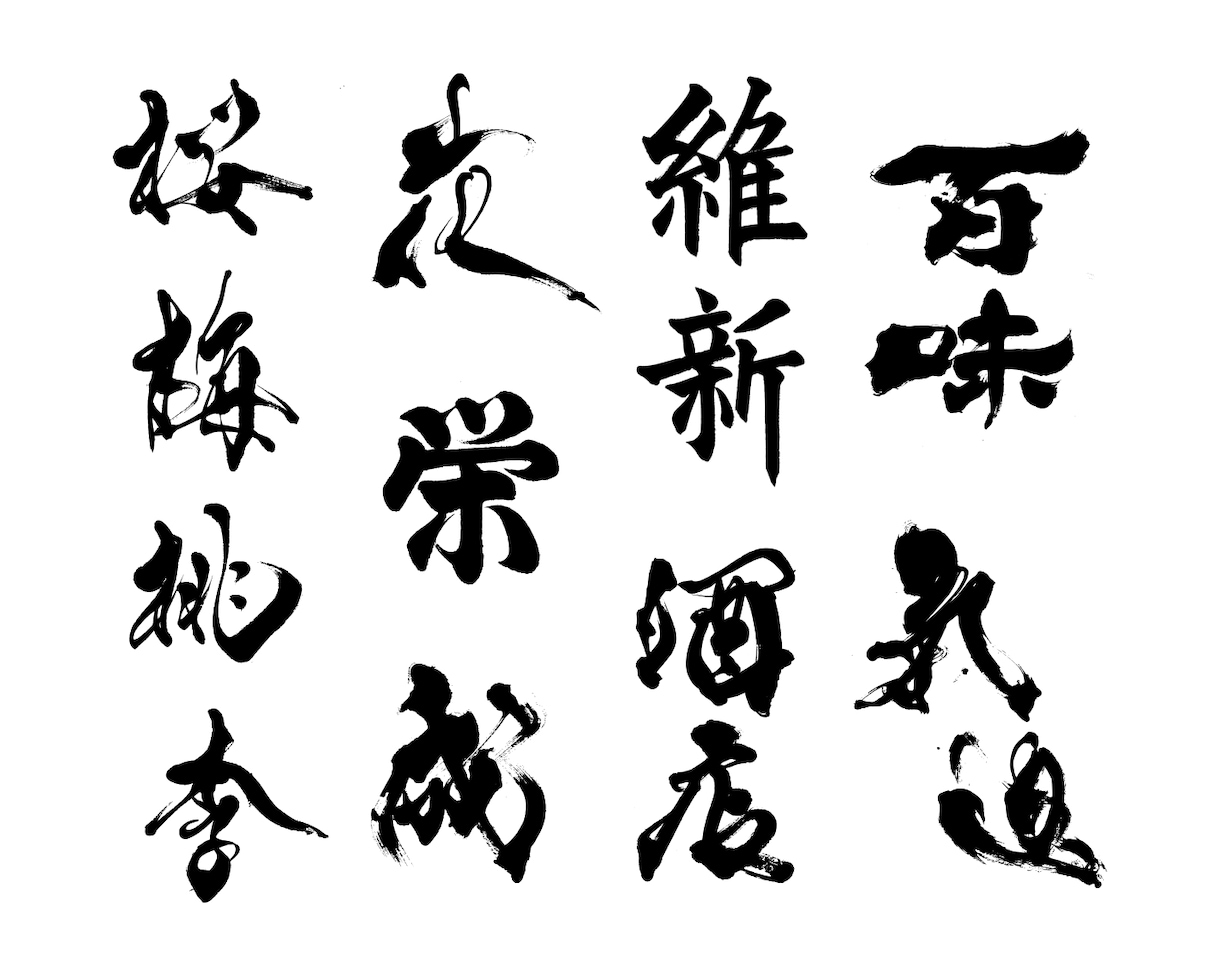 百味
氣迫
維新
酒店
花
栄
桜梅桃李